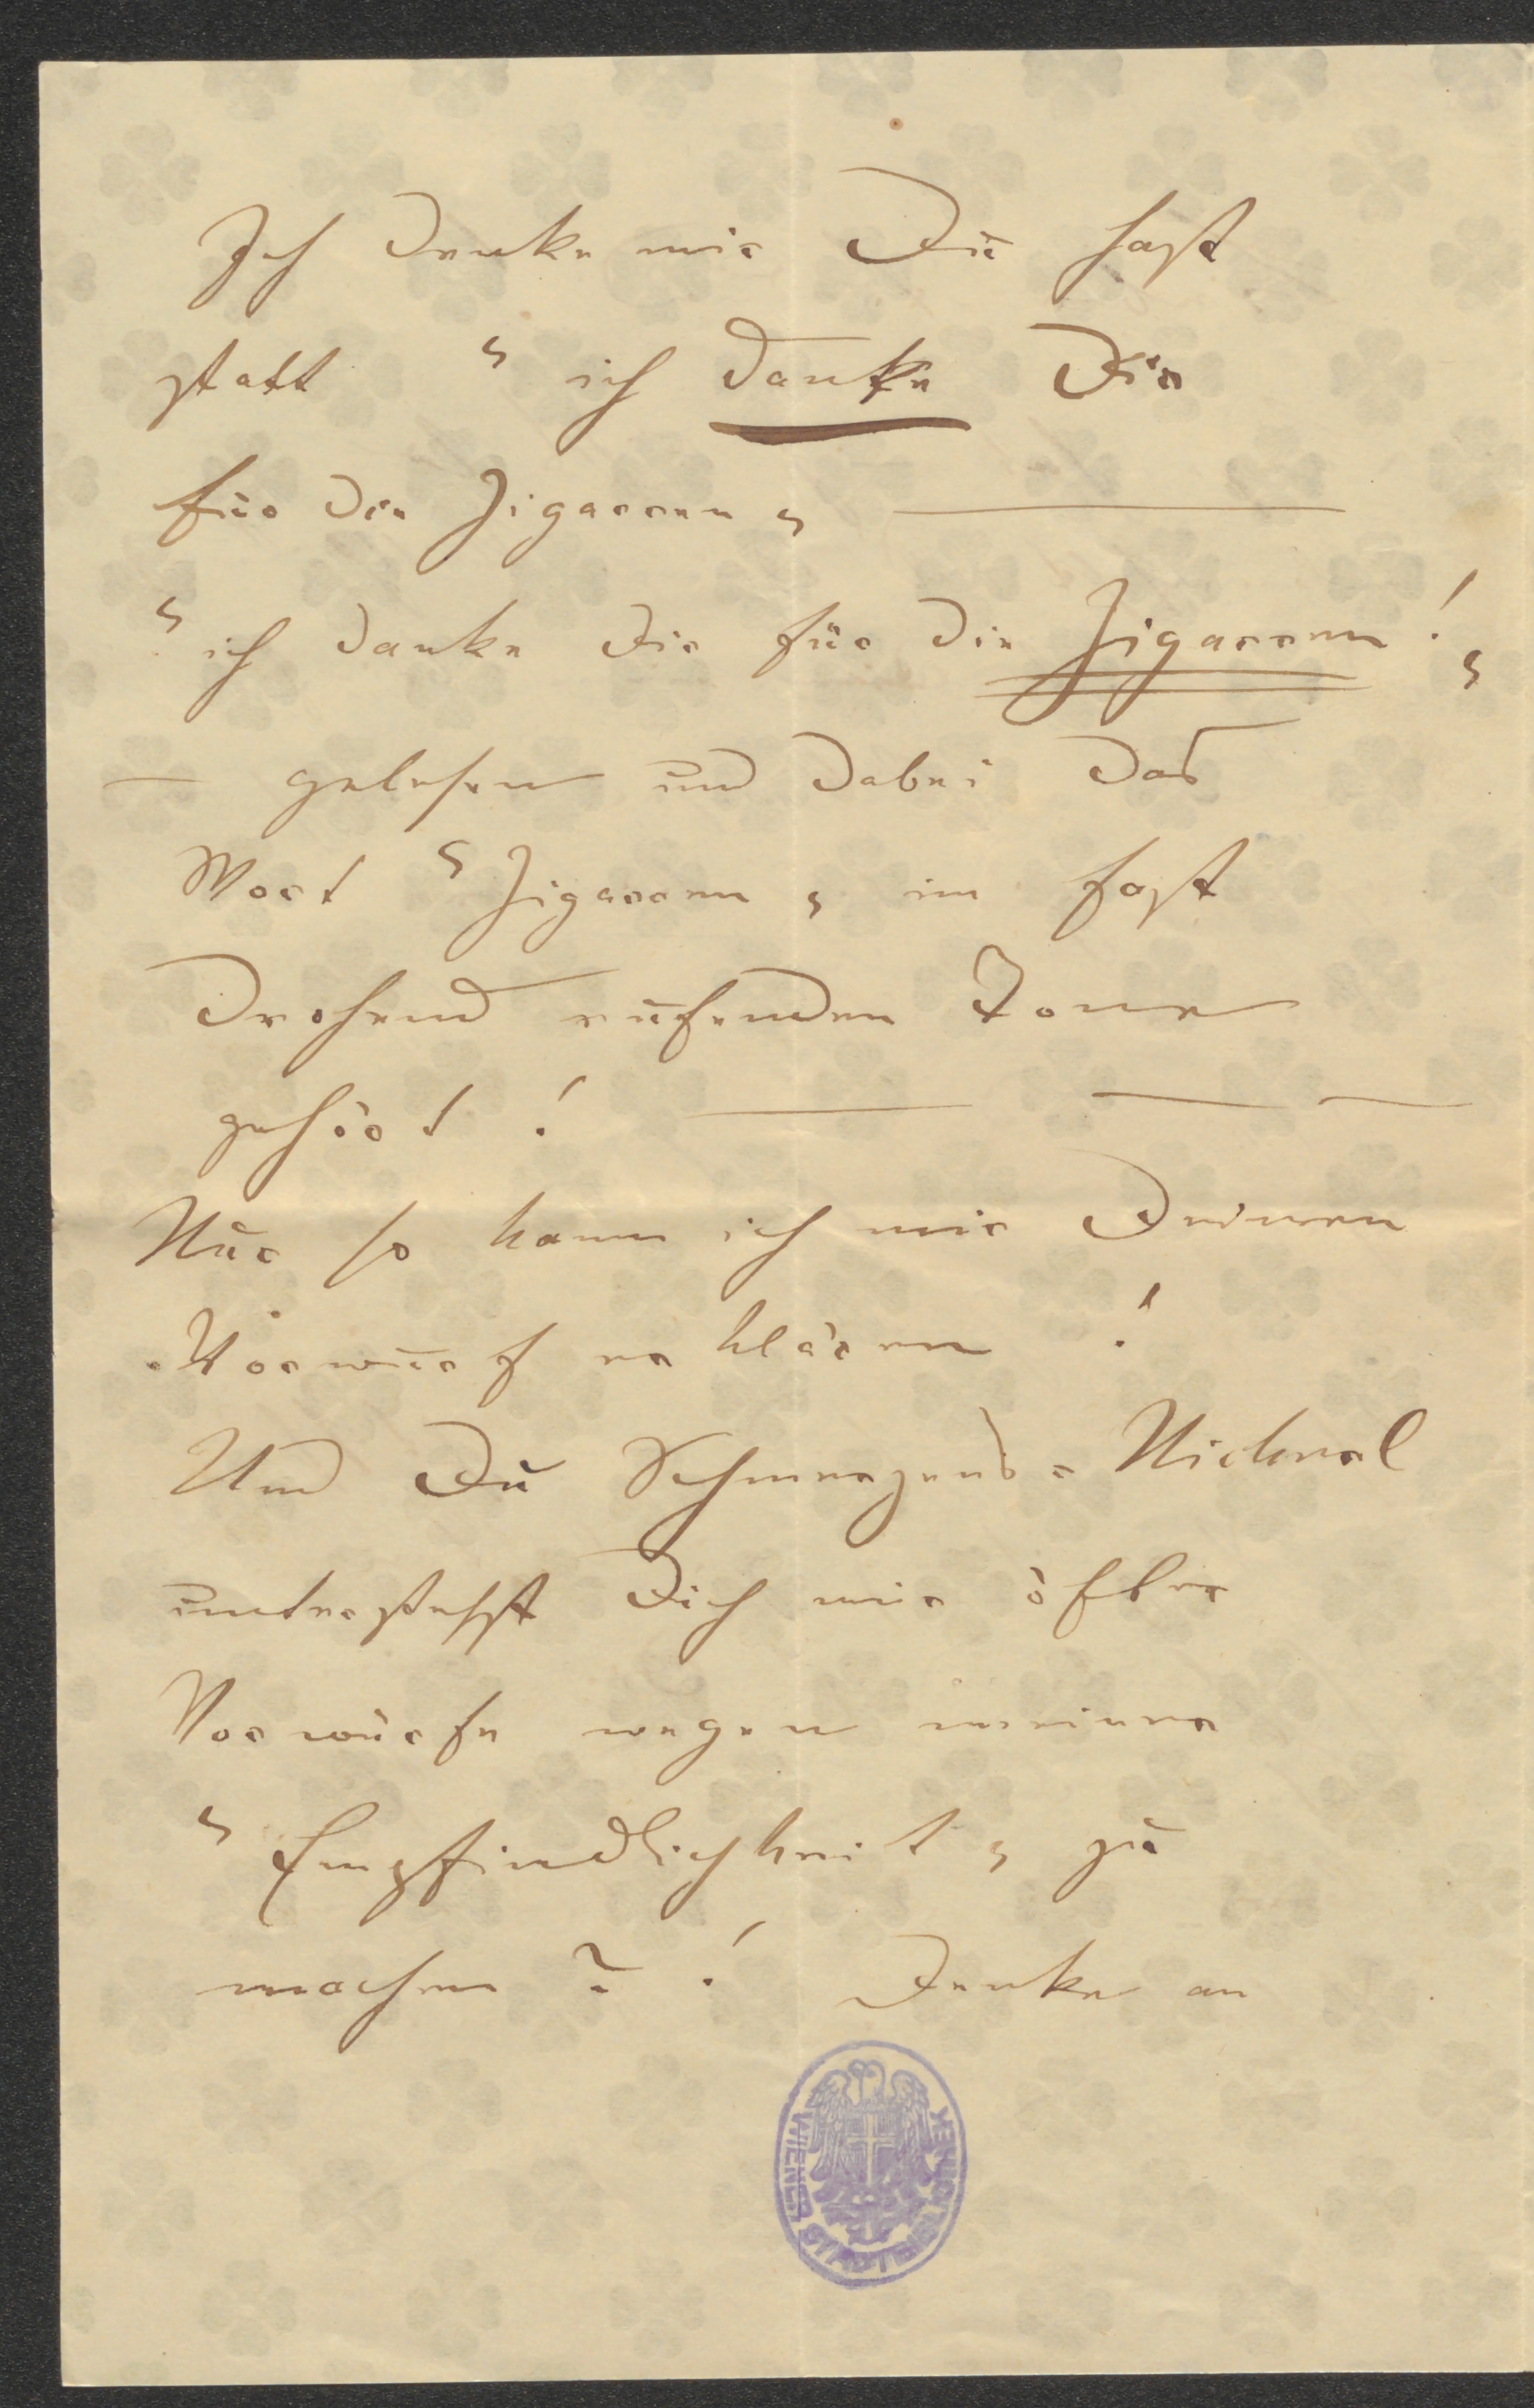 Ich denke mir Du hast
statt „ ich danke Dir
für die Zigarren „ —
„ ich danke Dir für die Zigarren ! „
— gelesen und dabei das
Wort „ Zigarren „ im fast
drohend rufenden Tone
gehört ! — — —
Nur so kann ich mir Deinen
Vorwurf erklären !
Und Du Schmerzens-Nickerl
unterstehst Dich mir öfter
Vorwürfe wegen meiner
„ Empfindlichkeit „ zu
machen ? ! Denke an
WIENER STADTBIBLIOTHEK